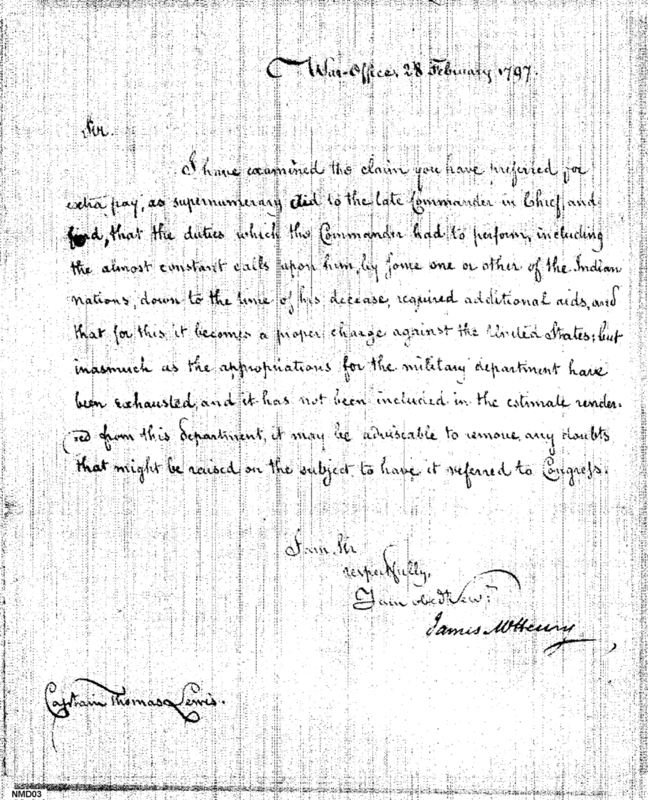 War-Office, 28 February 1797.
Sir.
I have examined the claim you have preferred for
extra pay, as supernumerary Aid to the late Commander in Chief, and
find, that the duties which the Commander had to perform, including
the almost constant calls upon him, by some one or other of the Indian
nations, down to the time of his decease, required additional aids, and
that for this it becomes a proper charge against the United States; but
inasmuch as the appropriations for the military department have
been exhausted, and it has not been included in the estimate render-
ed from this department, it may be adviseable to remove any doubts
that might be raised on the subject to have it referred to Congress.
I am Sir
respectfully,
James McHenry
Captain Thomas Lewis.
NMD03